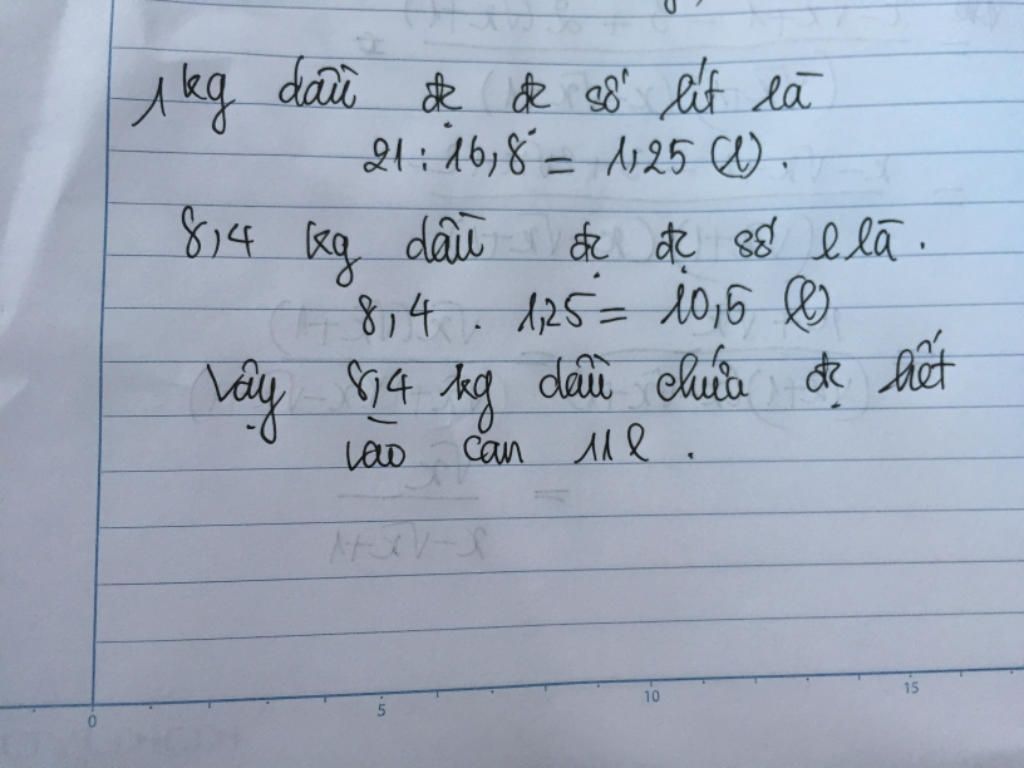 1 kg dầu đc đc số lít là
21 : 16,8 = 1,25 (l).
8,4 kg dầu đc đc số l là.
8,4 . 1,25 = 10,5 (l)
Vậy 8,4 kg dầu chứa đc hết
vào can 11 l.
0 5 10 15